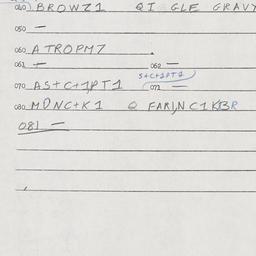 040) BROWZ1 QI GLE GRAVY
050 —
060 ATROPM7 .
061 — 062 —
S+C+1PT1
070 AS+C+1PT1 (071 —
080 MDNC+K1 @ FARIJNC1KBR
081 —